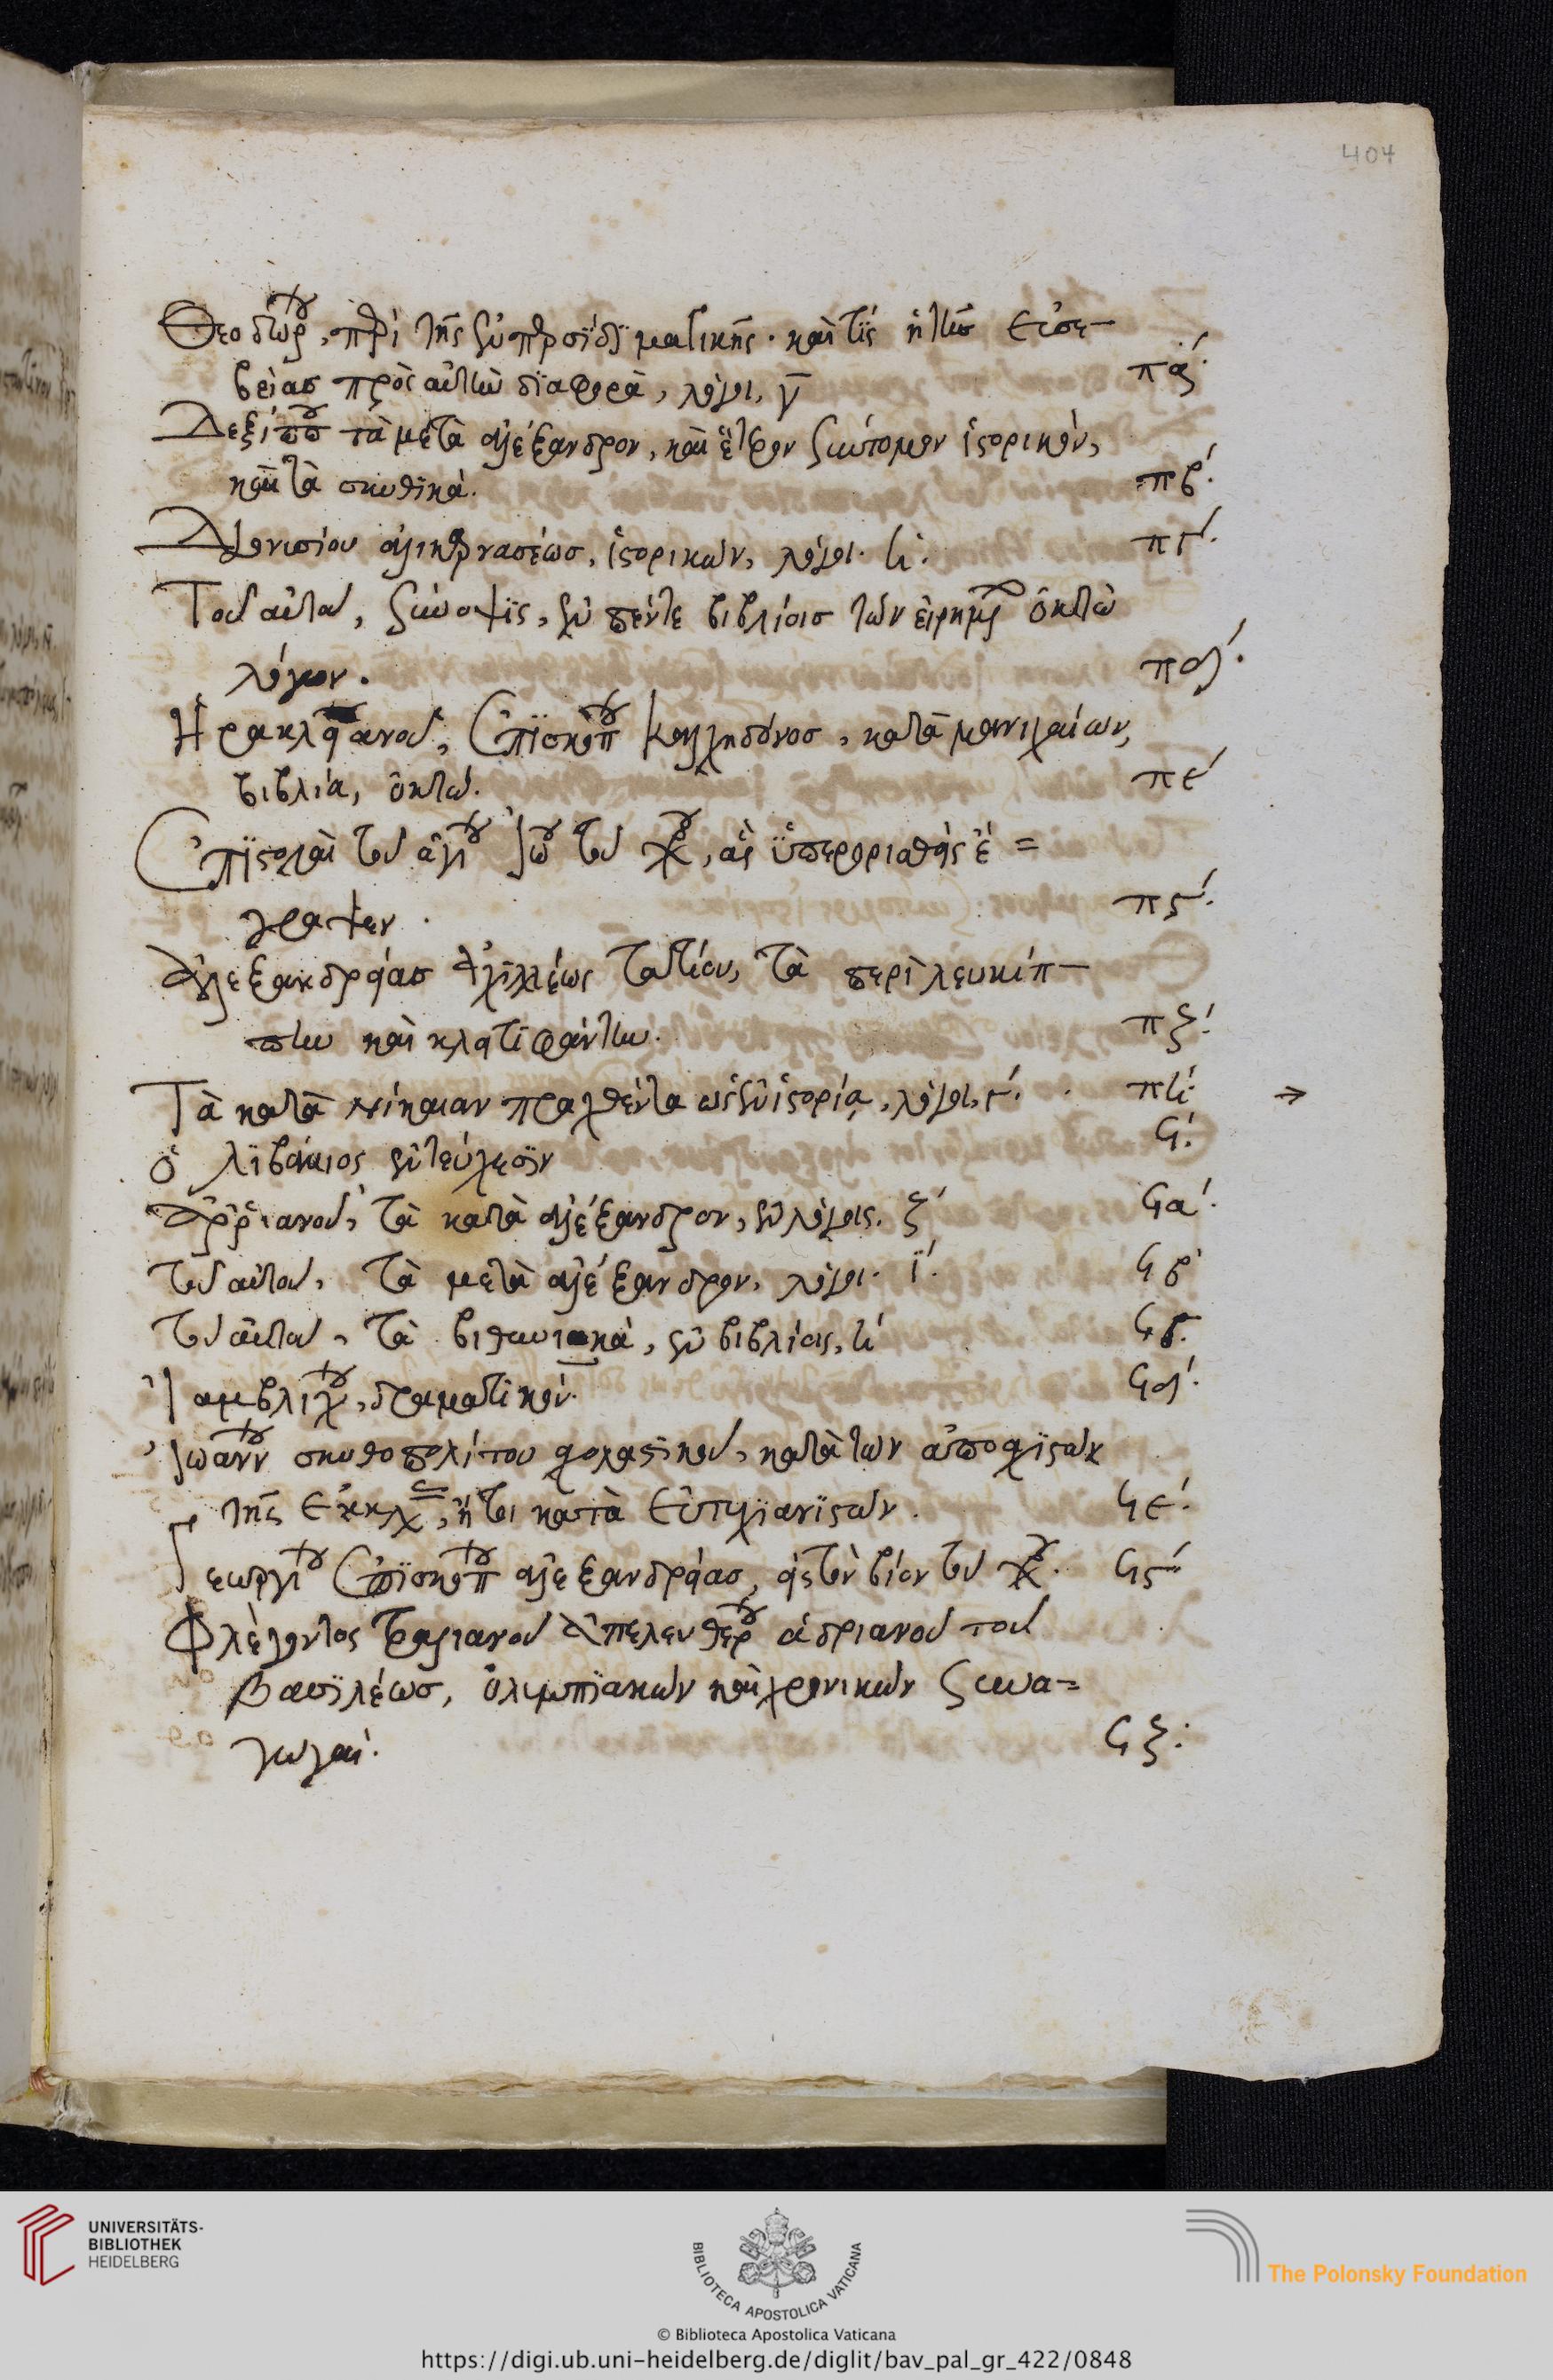 404
Θεοδώρου, περὶ τῆς ἐν περσίδι μαγικῆς. καὶ τίς ἡ τῆς εὐσε-
βείας πρὸς αὐτὴν διαφορὰ, λόγοι, γ̅ πα΄.
Δεξίππου τὰ μετὰ ἀλέξανδρον, καὶ ἕτερον σύντομον ἱστορικόν,
καὶ τὰ σκυθικά. πβ΄.
Διονυσίου ἁλικαρνασέως, ἱστορικῶν, λόγοι. κ΄. πγ΄.
Τοῦ αὐτοῦ, σύνοψις, ἐν πέντε βιβλίοις τῶν εἰρημένων ὀκτὼ
λόγων. πδ΄.
Ἡρακλειανοῦ, ἐπισκόπου καλχηδόνος, κατὰ μανιχαίων,
βιβλία, ὀκτώ. πε΄
Ἐπιστολαὶ τοῦ ἁγίου ἰωάννου τοῦ χρυσοστόμου, ἃς ὑπεροριαθεὶς ἔ=
γραψεν. πϛ΄.
Ἀλεξανδρείας ἀχιλλέως τατίου, τὰ περὶ λευκίπ-
πην καὶ κλειτιφάντην. πζ΄.
Τὰ κατὰ νίκαιαν πραχθέντα ὡς ἐν ἱστορίᾳ, λόγοι, γ΄. πη΄ →
ὁ λιβάνιος ἐν τεύχεσιν ϟ΄.
Ἀρριανοῦ, τὰ κατὰ ἀλέξανδρον, ἐν λόγοις. ζ΄ ϟα΄.
τοῦ αὐτοῦ, τὰ μετὰ ἀλέξανδρον, λόγοι. ϊ΄. ϟβ΄
τοῦ αὐτοῦ, τὰ βιθυνιακά, ἐν βιβλίοις, η΄ ϟγ.
Ἰαμβλίχου, δραματικόν. ϟδ΄.
Ἰωάννου σκυθοπολίτου σχολαστικοῦ, κατὰ τῶν ἀποσχιστῶν
τῆς ἐκκλησίας, ἤτοι κατὰ εὐτυχιανιστῶν. ϟε΄.
Γεωργίου ἐπισκόπου ἀλεξανδρείας, εἰς τὸν βίον τοῦ χρυσοστόμου. ϟϛ΄
Φλέγοντος τραλιανοῦ ἀπελευθέρου ἀδριανοῦ τοῦ
βασιλέως, ὀλυμπιακῶν καὶ χρονικῶν συνα=
γωγαί. ϟζ:
UNIVERSITÄTS-
BIBLIOTHEK
HEIDELBERG
BIBLIOTECA APOSTOLICA VATICANA
The Polonsky Foundation
© Biblioteca Apostolica Vaticana
https://digi.ub.uni-heidelberg.de/diglit/bav_pal_gr_422/0848